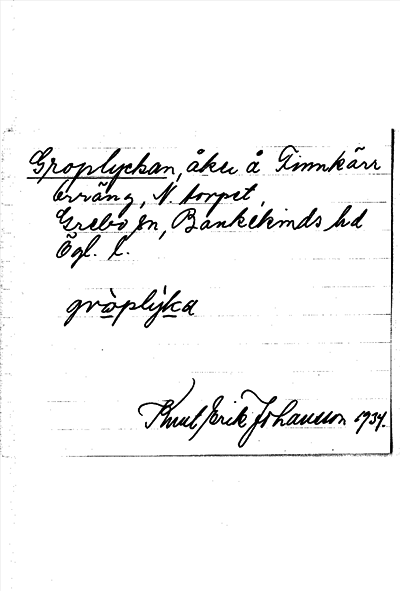 Groplyckan, åker å Finnkärr
N. torpet,
Grebo sn, Bankekinds hd
Ögl. l.
gròplỳka
Knut Erik Johansson 1934.